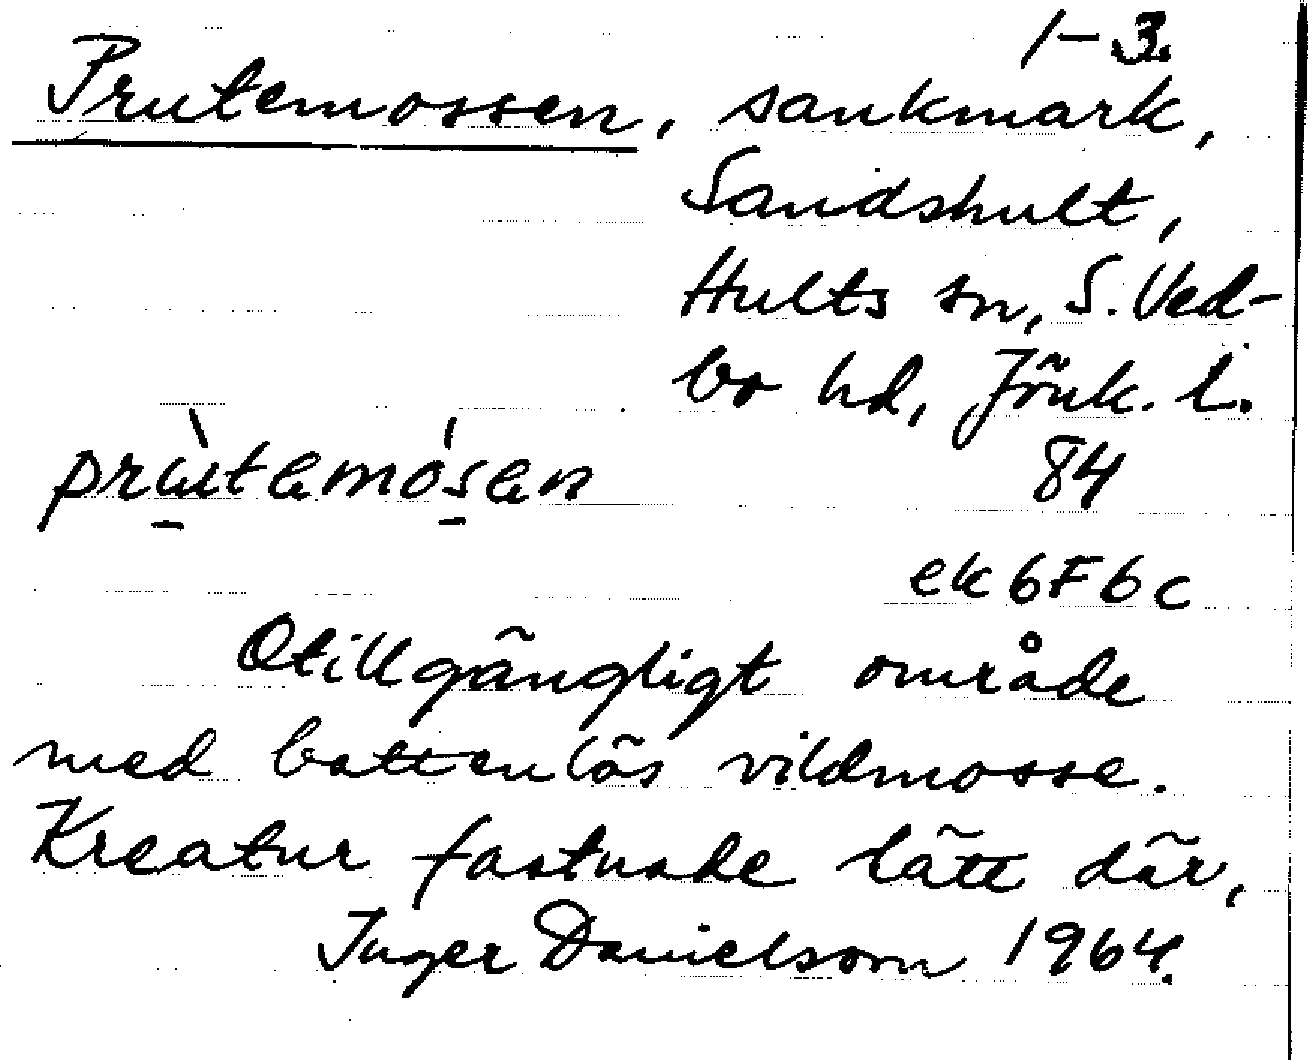 1-3.
Prutemossen, sankmark,
Sandshult,
Hults sn, S. Ved-
bo hd, Jönk. l.
prùtemósen 84
ek 6F6c
Otillgängligt område
med bottenlös vildmosse.
Kreatur fastnade lätt där,
Inger Danielsson 1964.